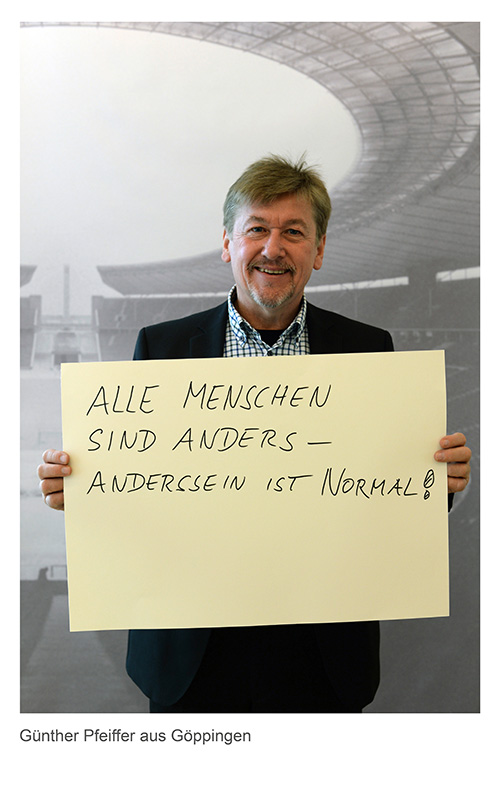 ALLE MENSCHEN
SIND ANDERS –
ANDERSSEIN IST NORMAL!
Günther Pfeiffer aus Göppingen